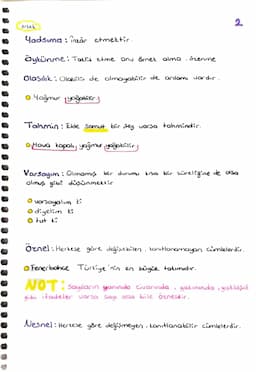 2
Yadsıma : İnkâr etmektir.
Öykünme : Taklit etme onu örnek alma özenme
Olasılık : Olabilir de olmayabilir de anlamı vardır.
Yağmur yağabilir.
Tahmin : Elde somut bir şey varsa tahmindir.
Hava kapalı, yağmur yağabilir.
Varsayım : Olmamış bir durumu kısa bir süreliğine de olsa
olmuş gibi düşünmektir
varsayalım ki
diyelim ki
tut ki
Öznel : Herkese göre değişebilen, kanıtlanamayan cümlelerdir.
Fenerbahçe Türkiye'nin en büyük takımıdır.
NOT : Sayıların yanında civarında, yakınında, yaklaşık
gibi ifadeler varsa sayı olsa bile özneldir.
Nesnel : Herkese göre değişmeyen, kanıtlanabilir cümlelerdir.